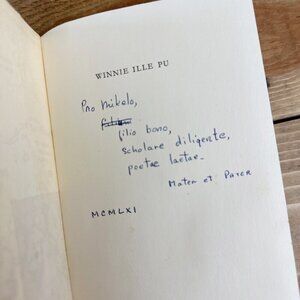 WINNIE ILLE PU
Pro Mikelo,
filio bono,
scholare diligente,
poetae laetae
Mater et Pater
MCMLXI